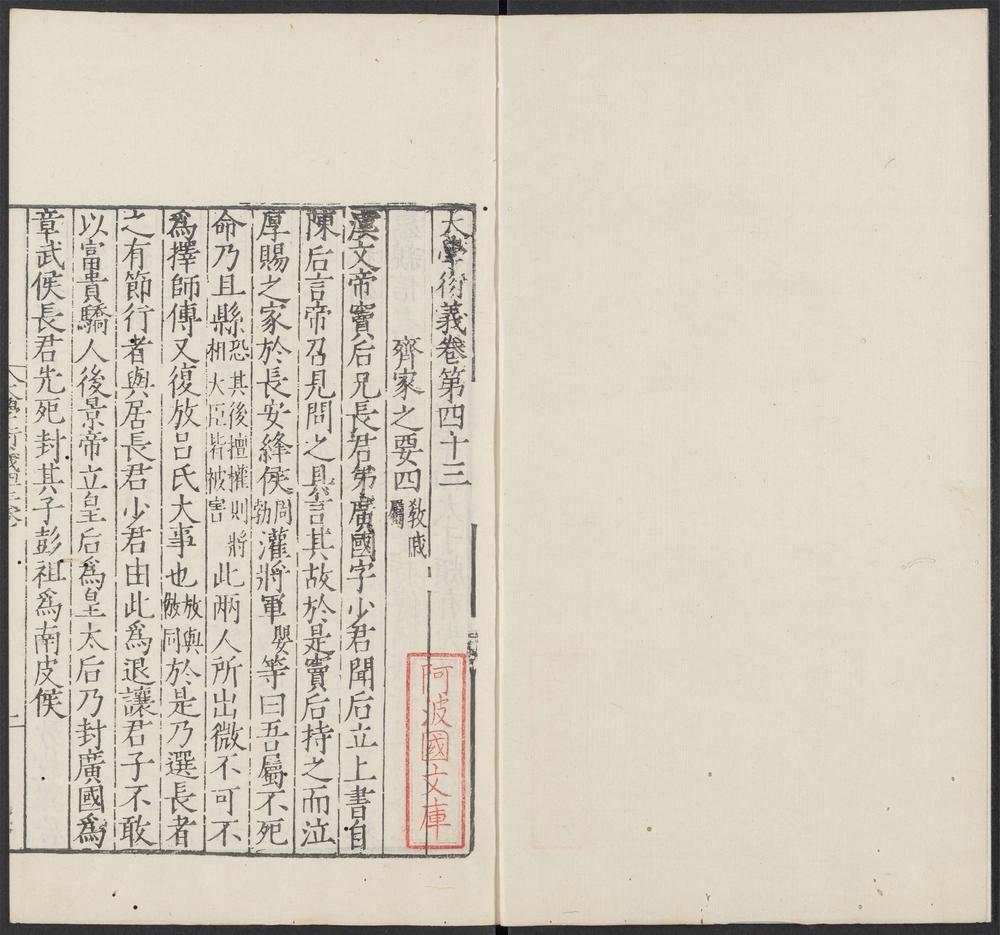 大學衍義卷第四十三
齊家之要四 敎戚屬
漢文帝竇后兄長君弟廣國字少君聞后立上書自
陳后言帝召見問之具言其故於是竇后持之而泣
厚賜之家於長安絳侯周勃灌將軍嬰等曰吾屬不死
命乃且縣恐其後擅權則將相大臣皆被害此兩人所出微不可不
為擇師傅又復放呂氏大事也放與倣同於是乃選長者
之有節行者與居長君少君由此為退讓君子不敢
以富貴驕人後景帝立皇后為皇太后乃封廣國為
章武侯長君先死封其子彭祖為南皮侯
阿波國文庫